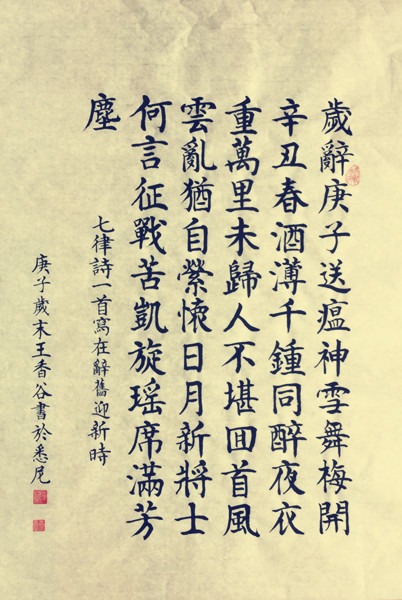 歲辭庚子送瘟神雪舞梅開
辛丑春酒薄千鍾同醉夜衣
重萬里未歸人不堪回首風
雲亂猶自縈懷日月新將士
何言征戰苦凱旋瑶席滿芳
塵
七律詩一首寫在辭舊迎新時
庚子歲末王香谷書於悉尼